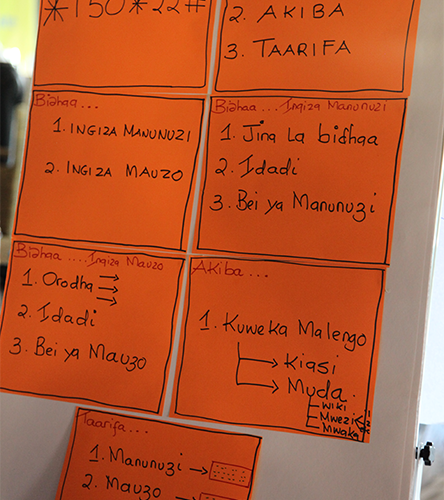 *150*22#
2. AKIBA
3. TAARIFA
Bidhaa ...
1. INGIZA MANUNUZI
2. INGIZA MAUZO
Bidhaa ... Ingiza Manunuzi
1. Jina La bidhaa
2. Idadi
3. Bei ya Manunuzi
Bidhaa .... Ingiza Mauzo
1. Orodha
2. Idadi
3. Bei ya Mauzo
AKIBA ...
1. KUWEKA Malengo
Kiasi
Muda
WIKI
MWEZI
MWAKA
Taarifa...
1. Manunuzi
2. Mauzo